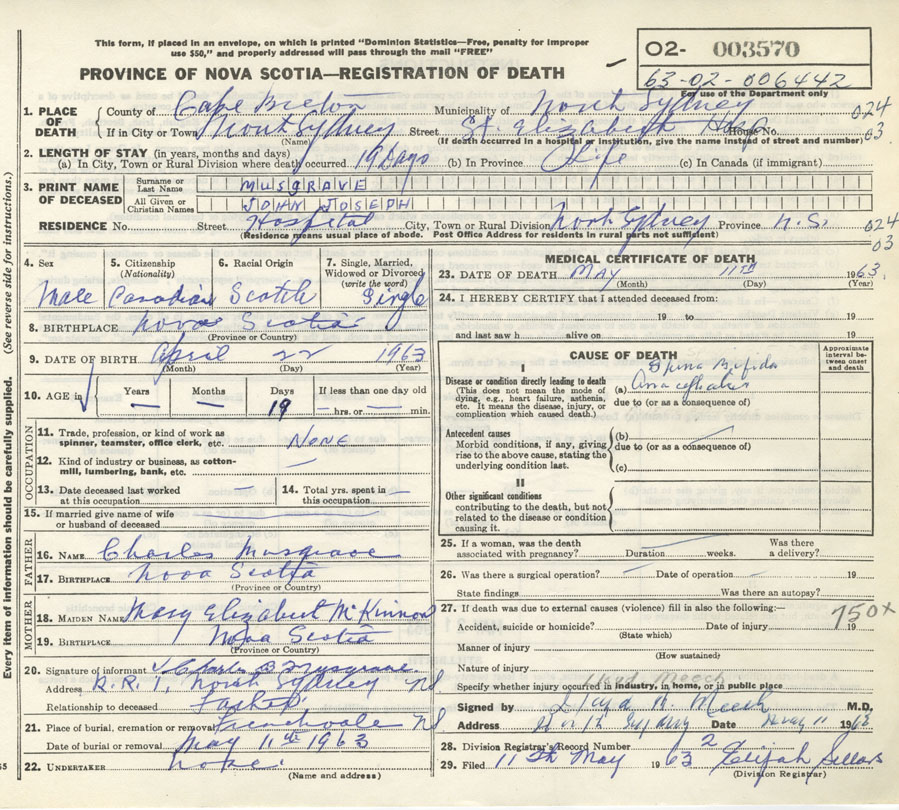 This form, if placed in an envelope, on which is printed "Dominion Statistics—Free, penalty for improper
use $50," and properly addressed will pass through the mail "FREE"
O2- 003570
63-02-006442
For use of the Department only
PROVINCE OF NOVA SCOTIA—REGISTRATION OF DEATH
1. PLACE OF DEATH County of Cape Breton Municipality of North Sydney 024
If in City or Town North Sydney Street St. Elizabeth Hosp House No. 03
(Name) (If death occurred in a hospital or institution, give the name instead of street and number)
2. LENGTH OF STAY (in years, months and days)
(a) In City, Town or Rural Division where death occurred. 19 Days (b) In Province Life (c) In Canada (if immigrant)
3. PRINT NAME OF DECEASED Surname or Last Name MUSGRAVE
All Given or Christian Names JOHN JOSEPH
RESIDENCE No. Street Hospital City, Town or Rural Division North Sydney Province N.S. 024
(Residence means usual place of abode. Post Office Address for residents in rural parts not sufficient) 03
4. Sex 5. Citizenship (Nationality) 6. Racial Origin 7. Single, Married, Widowed or Divorced (write the word)
Male Canadian Scotch Single
8. BIRTHPLACE Nova Scotia
(Province or Country)
9. DATE OF BIRTH April 22 1963
(Month) (Day) (Year)
10. AGE in Years Months Days If less than one day old
— — 19 — hrs. or — min.
OCCUPATION
11. Trade, profession, or kind of work as spinner, teamster, office clerk, etc. NONE
12. Kind of industry or business, as cotton-mill, lumbering, bank, etc. —
13. Date deceased last worked at this occupation — 14. Total yrs. spent in this occupation —
15. If married give name of wife or husband of deceased
FATHER
16. NAME Charles Musgrave
17. BIRTHPLACE Nova Scotia
(Province or Country)
MOTHER
18. MAIDEN NAME Mary Elizabeth McKinnon
19. BIRTHPLACE Nova Scotia
(Province or Country)
20. Signature of informant Charles B Musgrave
Address R.R. 1, North Sydney NS
Relationship to deceased Father
21. Place of burial, cremation or removal Frenchvale NS
Date of burial or removal May 11th 1963
22. UNDERTAKER None.
(Name and address)
MEDICAL CERTIFICATE OF DEATH
23. DATE OF DEATH MAY 11TH 1963
(Month) (Day) (Year)
24. I HEREBY CERTIFY that I attended deceased from:
19 to 19
and last saw h alive on 19
CAUSE OF DEATH
Approximate interval between onset and death
I
Disease or condition directly leading to death (a) Spina Bifida
(This does not mean the mode of dying, e.g., heart failure, asthenia, etc. It means the disease, injury, or complication which caused death.)
due to (or as a consequence of)
Antecedent causes (b)
Morbid conditions, if any, giving rise to the above cause, stating the underlying condition last.
due to (or as a consequence of)
(c)
II
Other significant conditions
contributing to the death, but not related to the disease or condition causing it.
25. If a woman, was the death associated with pregnancy? Duration weeks. Was there a delivery?
26. Was there a surgical operation? Date of operation 19
State findings Was there an autopsy?
27. If death was due to external causes (violence) fill in also the following:— 750+
Accident, suicide or homicide? Date of injury 19
(State which)
Manner of injury
(How sustained)
Nature of injury
Specify whether injury occurred in industry, in home, or in public place
Signed by Meech M.D.
Address North Sydney Date May 11 1963
28. Division Registrar's Record Number 2
29. Filed 11th May 1963 Elijah Sellars
(Division Registrar)
(See reverse side for instructions.)
Every item of information should be carefully supplied.